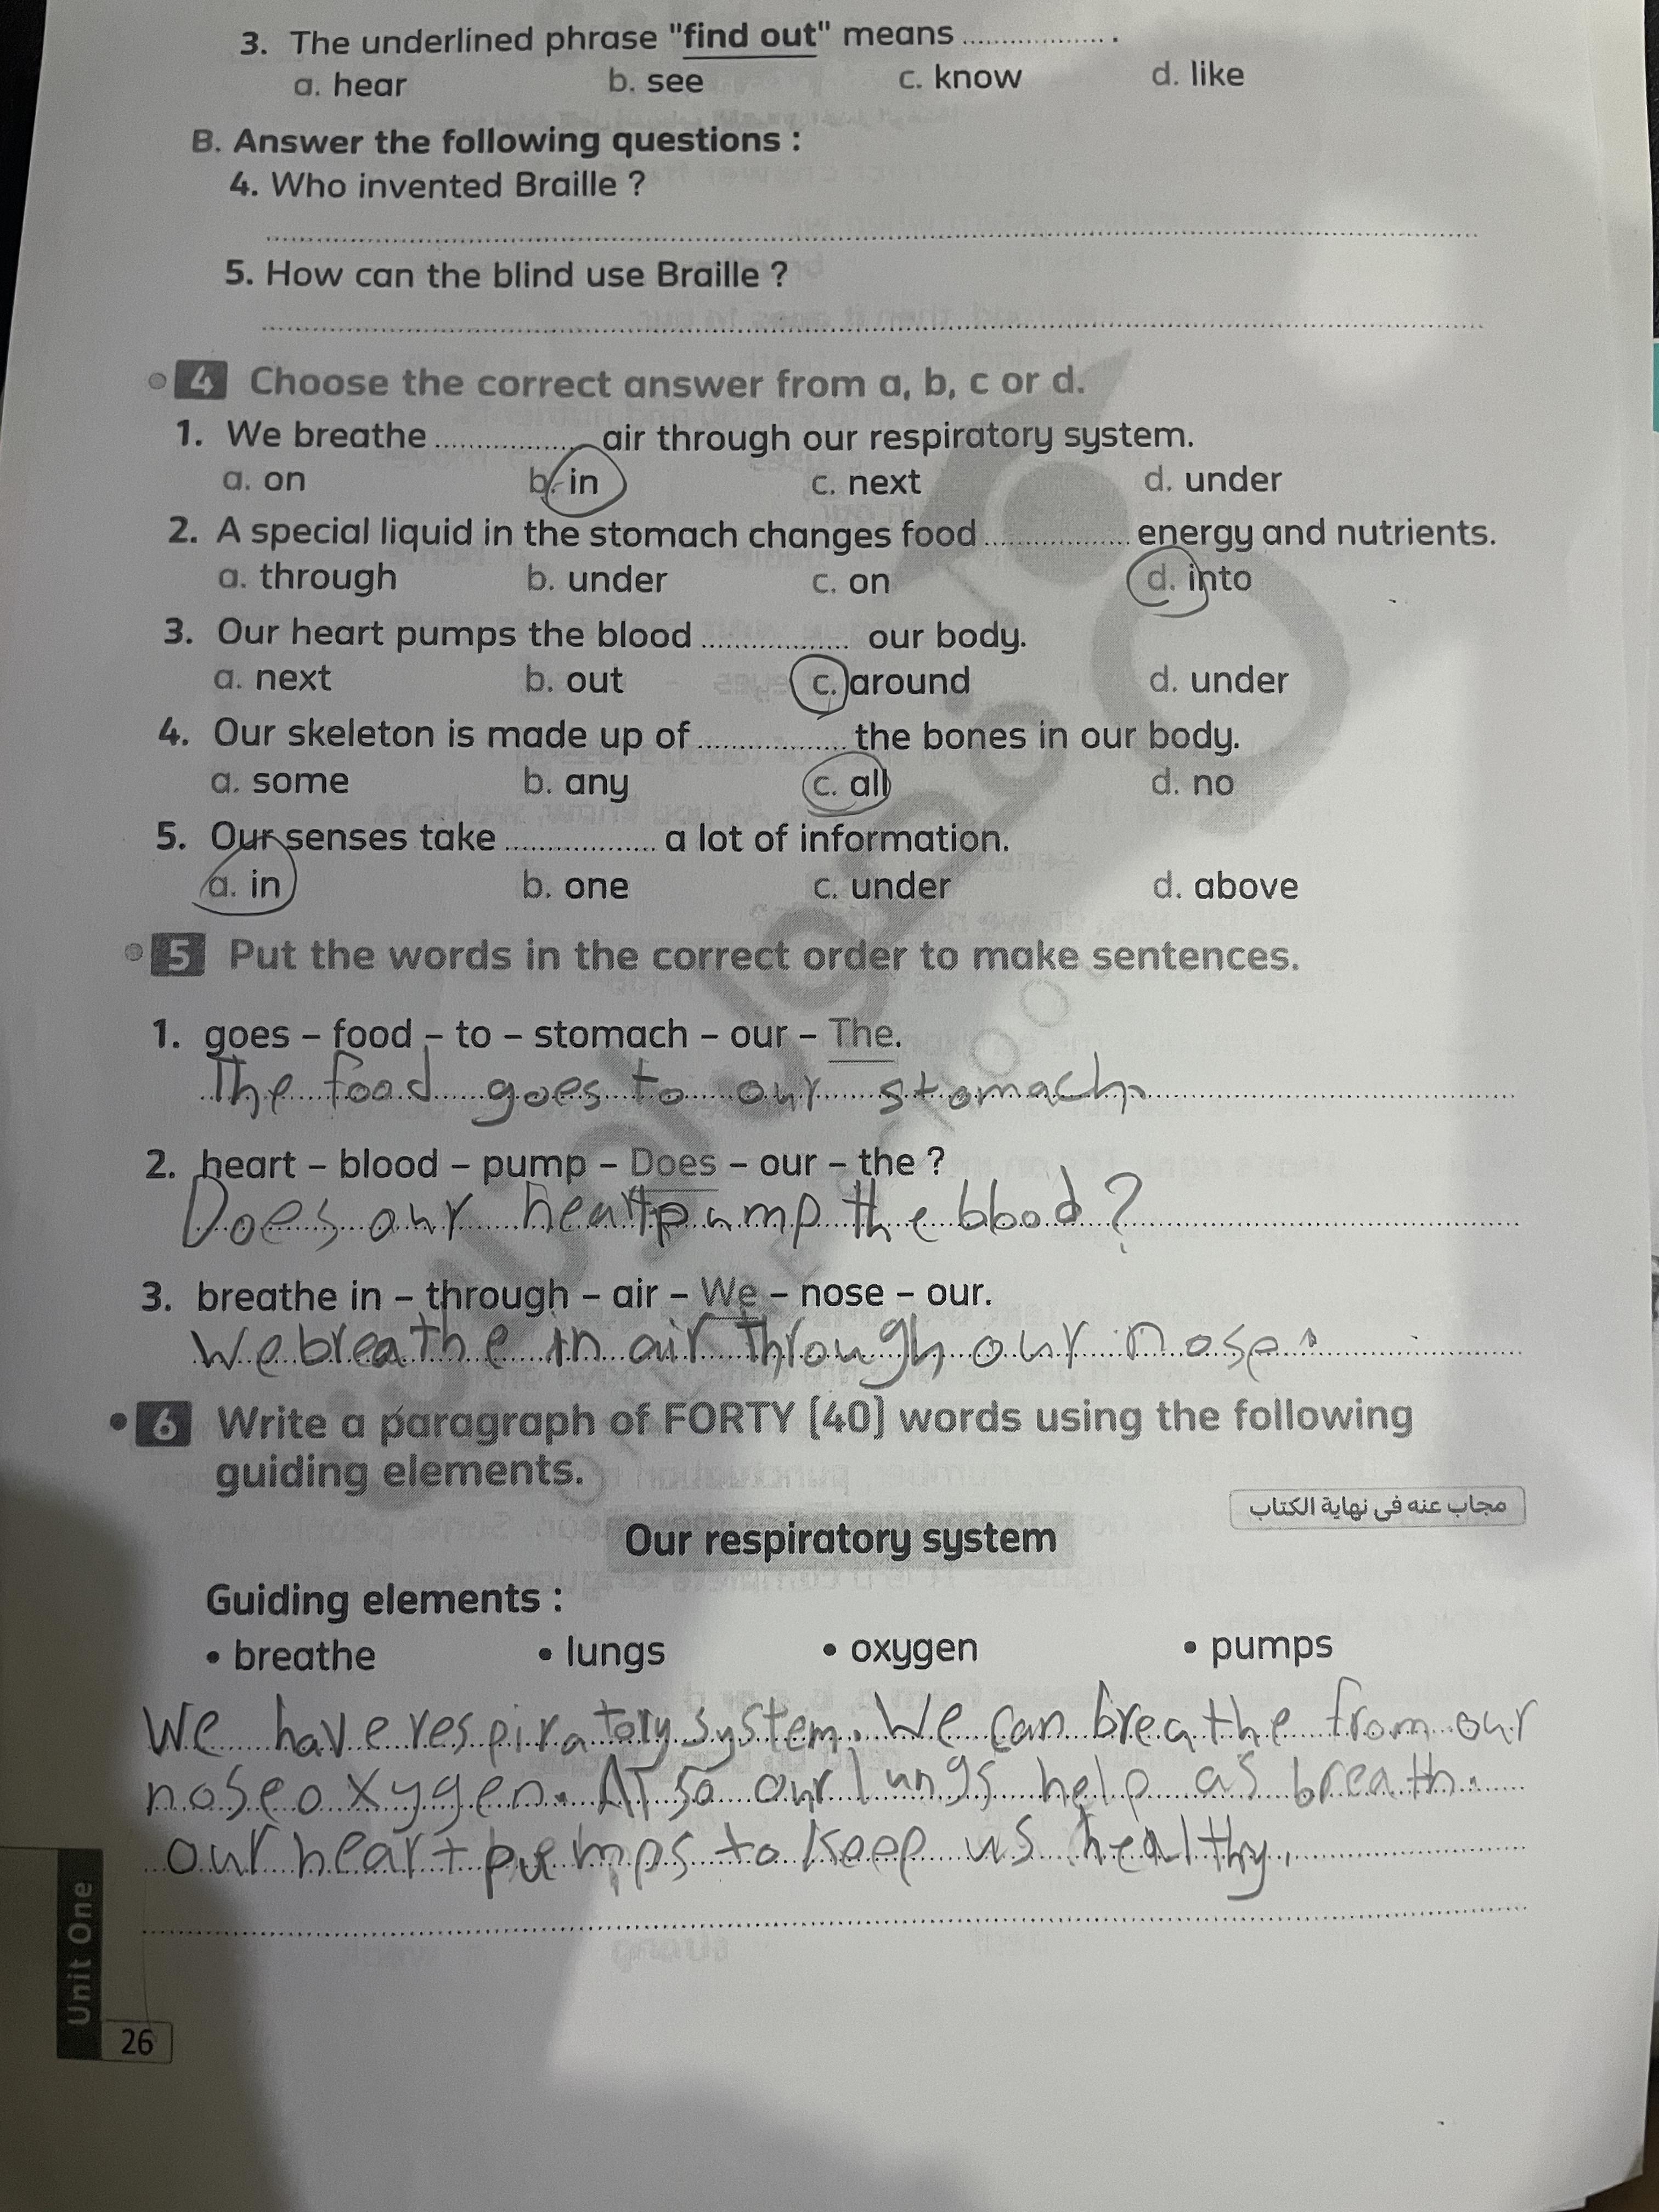 3. The underlined phrase "find out" means .................. .
a. hear b. see c. know d. like
B. Answer the following questions :
4. Who invented Braille ?
5. How can the blind use Braille ?
4 Choose the correct answer from a, b, c or d.
1. We breathe .................. air through our respiratory system.
a. on b. in c. next d. under
2. A special liquid in the stomach changes food .................. energy and nutrients.
a. through b. under c. on d. into
3. Our heart pumps the blood .................. our body.
a. next b. out c. around d. under
4. Our skeleton is made up of .................. the bones in our body.
a. some b. any c. all d. no
5. Our senses take .................. a lot of information.
a. in b. one c. under d. above
5 Put the words in the correct order to make sentences.
1. goes – food – to – stomach – our – The.
The food goes to our stomach.
2. heart – blood – pump – Does – our – the ?
Does our heart pump the blood?
3. breathe in – through – air – We – nose – our.
We breathe in air through our nose.
6 Write a paragraph of FORTY (40) words using the following
guiding elements.
مجاب عنه فى نهاية الكتاب
Our respiratory system
Guiding elements :
• breathe • lungs • oxygen • pumps
We have respiratory system. We can breathe from our
nose oxygen. Also our lungs help as breath.
our heart pumps to keep us healthy.
Unit One
26